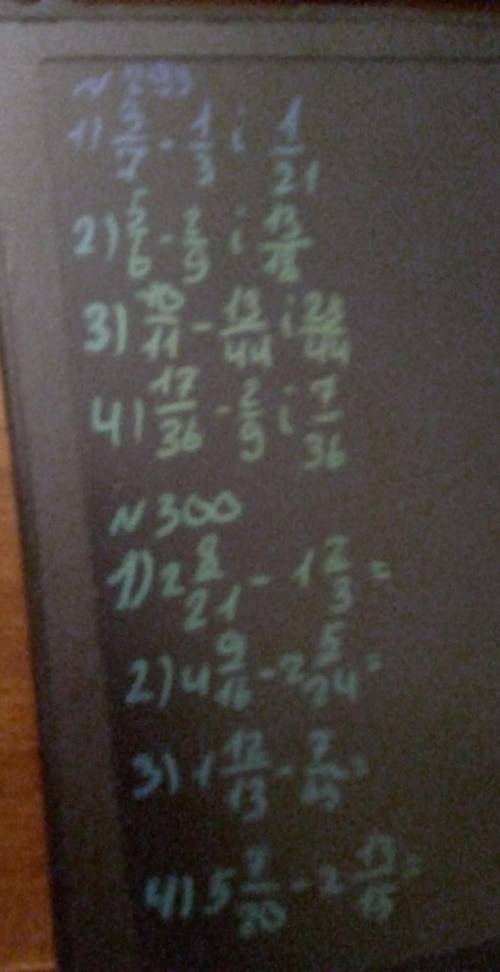 N 299
1) 5/7 - 1/3 i 1/21
2) 5/6 - 2/9 i 13/18
3) 10/11 - 13/44 i 23/44
4) 17/36 - 2/9 i 7/36
N 300
1) 2 8/21 - 1 2/3 =
2) 4 9/16 - 2 5/24 =
3) 1 12/13 - 7/ =
4) 5 7/20 - 2 13/15 =